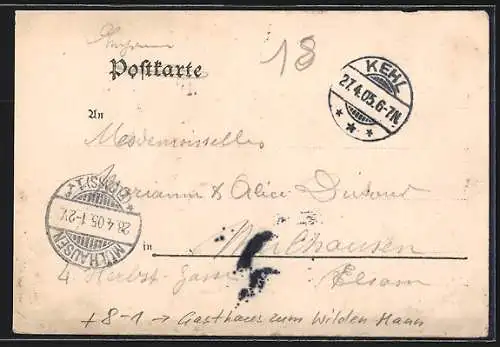 18
Postkarte
KEHL
27.4.05.6-7N.
An
Mesdemoiselles
Marianne & Alice Dutour
MÜLHAUSEN
28.4.05.1-2V.
(ELSASS)
in Mülhausen
4 Herbst-Gasse Elsass
+ 8-1 → Gasthaus zum Wilden Mann